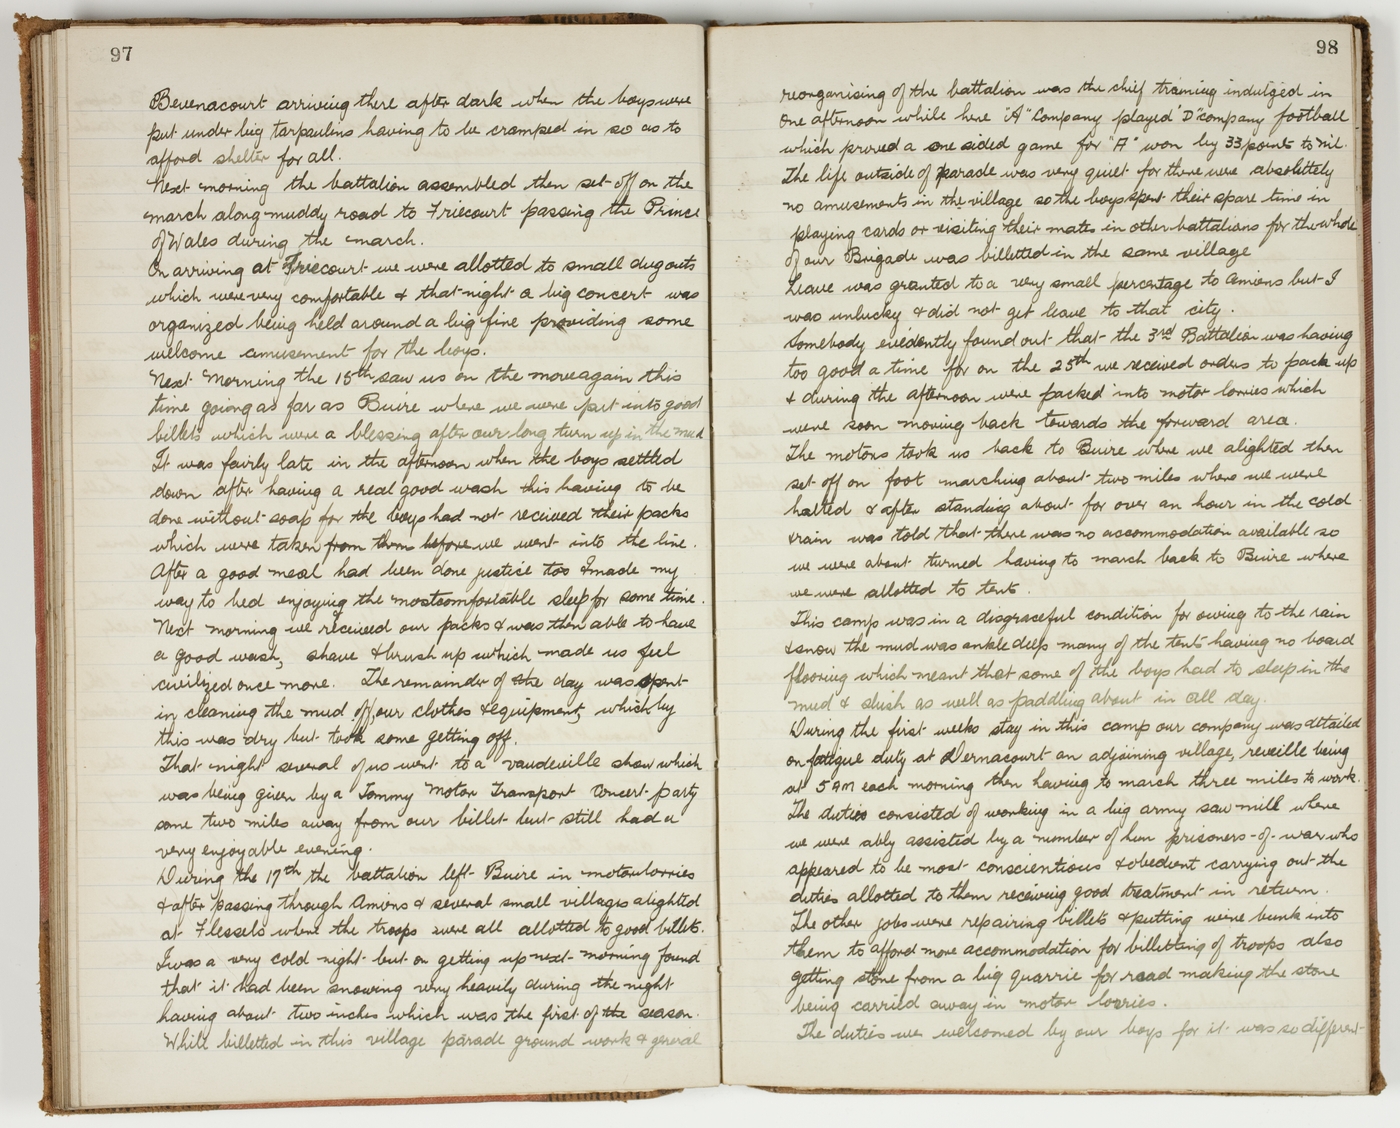 97
Bevenacourt arriving there after dark when the boys were
put under big tarpaulins having to be cramped in so as to
afford shelter for all.
Next morning the battalion assembled then set off on the
march along muddy road to Friecourt passing the Prince
of Wales during the march.
On arriving at Friecourt we were allotted to small dugouts
which were very comfortable & that night a big concert was
organized being held around a big fine providing some
welcome amusement for the boys.
Next Morning the 15th saw us on the move again this
time goiong as far as Buire where we were put into good
billets which were a blessing after our long turn up in the mud
It was fairly late in the afternoon when the boys settled
down after having a real good wash this having to be
done without soap for the boys had not received their packs
which were taken from them before we went into the line.
After a good meal had been done justice too I made my
way to bed enjoying the most comfortable sleep for some time.
Next morning we received our packs & was then able to have
a good wash, shave & brush up which made us feel
civilized once more. The remainder of the day was spent
in cleaning the mud off our clothes & equipment, which by
this was dry but took some getting off.
That night several of us went to a vaudeville show which
was being given by a Tommy Motor Transport Concert party
some two miles away from our billet but still had a
very enjoyable evening.
During the 17th the battalion left Buire in motor lorries
& after passing through Amiens & several small villages alighted
at Flessels where the troops were all allotted to good billets.
It was a very cold night but on getting up next morning found
that it had been snowing very heavily during the night
having about two inches which was the first of the season.
Whilt billetted in this village parade ground work & general
98
reorganising of the battalion was the chief training indulged in
One afternoon while here "A" Company played "D" company football
which proved a one sided game for "A" won by 33 points to nil.
The life outside of parade was very quiet for there were absolutely
no amusements in the village so the boys spent their spare time in
playing cards or visiting their mates in other battalions for the whole
of our Brigade was billetted in the same village
Leave was granted to a very small percentage to Amiens but I
was unlucky & did not get leave to that city.
Somebody evidently found out that the 3rd Battalion was having
too good a time for on the 25th we received orders to pack up
& during the afternoon were packed into motor lorries which
were soon moving back towards the forward area.
The motors took us back to Buire where we alighted then
set off on foot marching about two miles where we were
halted & after standing about for over an hour in the cold
& rain was told that there was no accommodation available so
we were about turned having to march back to Buire where
we were allotted to tents.
This camp was in a disgraceful condition for owing to the rain
& snow the mud was ankle deep many of the tents having no board
flooring which meant that some of the boys had to sleep in the
mud & slush as well as paddling about in all day.
During the first weeks stay in this camp our company was detailed
on fatigue duty at Dernacourt an adjoining village, reveille being
at 5 AM each morning then having to march three miles to work.
The duties consisted of working in a big army saw mill where
we were ably assisted by a number of hun prisoners-of-war who
appeared to be most conscientious & obedient carrying out the
duties allotted to them receiving good treatment in return.
The other jobs were repairing billets & putting wire bunk into
them to afford more accommodation for billetting of troops also
getting stone from a big quarrie for road making the stone
being carried away in motor lorries.
The duties we welcomed by our boys for it was so different